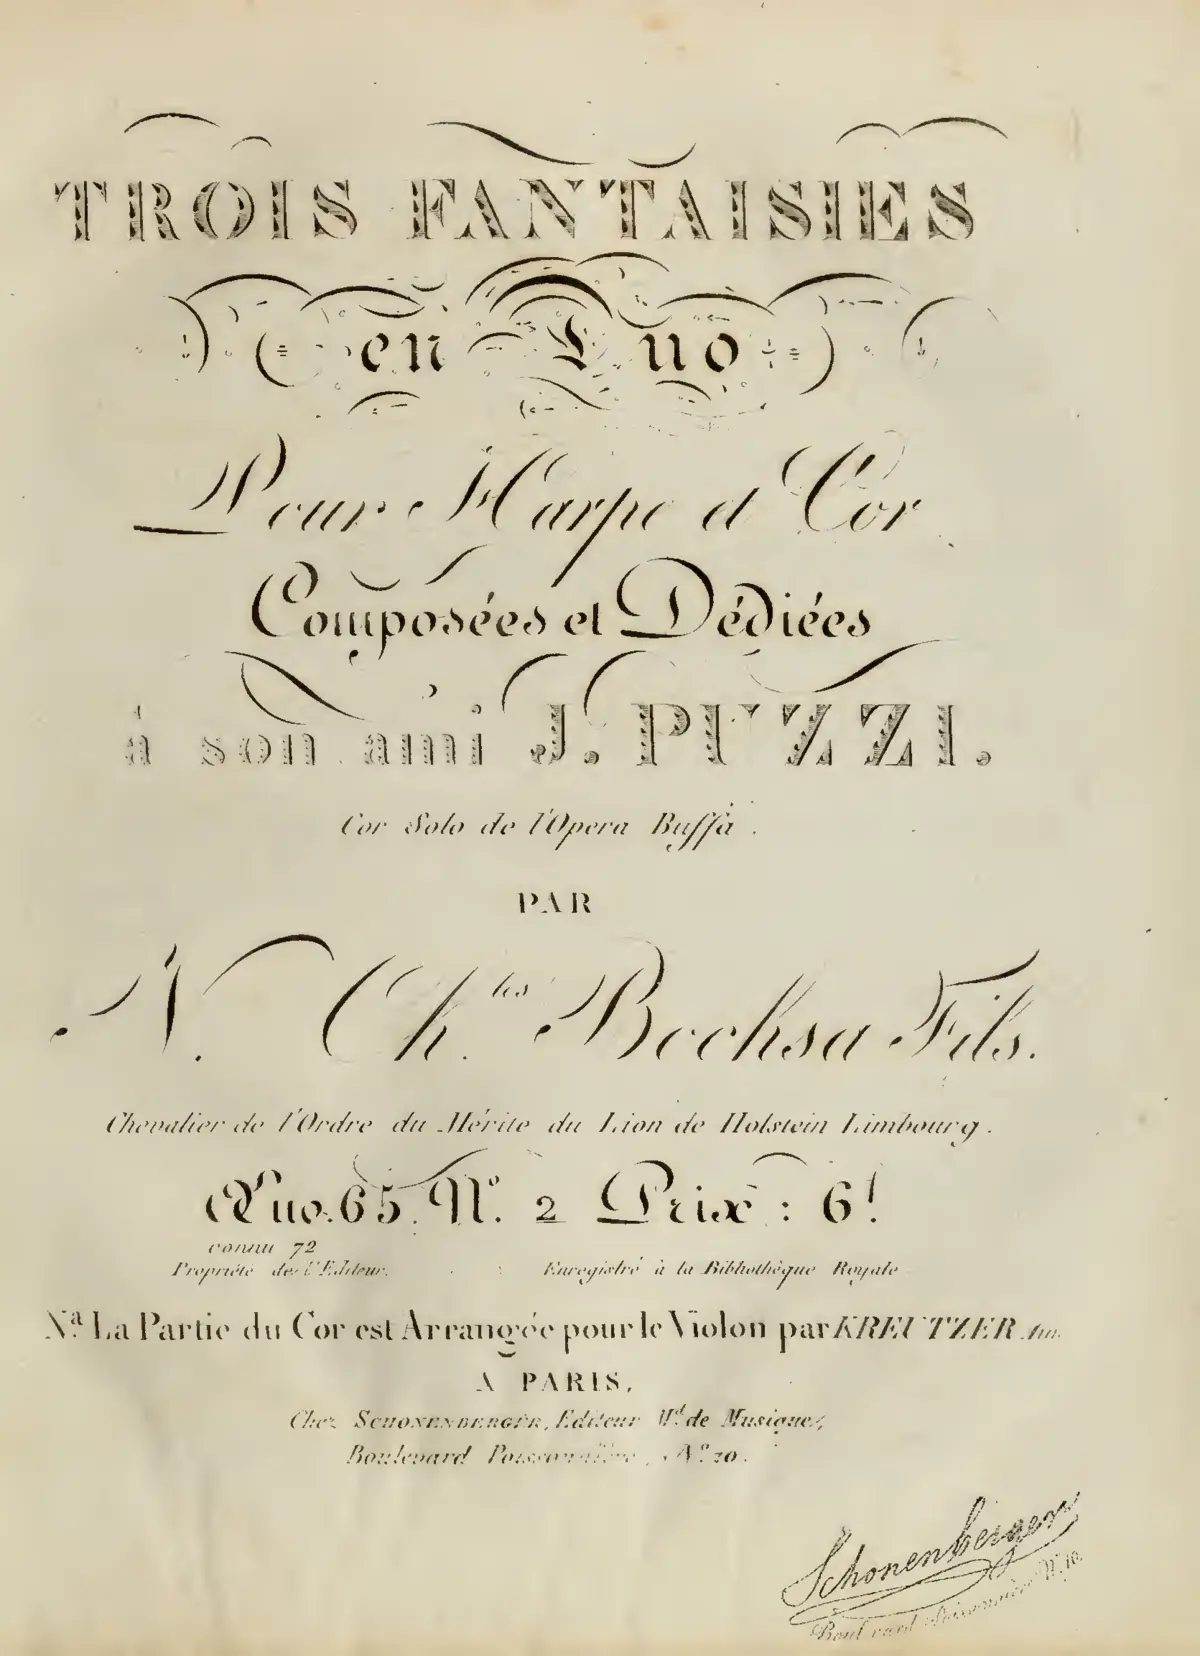 TROIS FANTAISIES
en Duo
Pour Harpe et Cor
Composées et Dédiées
à son ami J. PUZZI.
Cor Solo de l'Opera Buffa.
PAR
N. Ch.les Bochsa Fils.
Chevalier de l'Ordre du Mérite du Lion de Holstein Limbourg.
Œuv. 65. N.º 2 Prix : 6f
connu 72
Propriété de l'Editeur. Enregistré à la Bibliothèque Royale
N.a La Partie du Cor est Arrangée pour le Violon par KREUTZER
A PARIS,
Chez SCHONENBERGER, Editeur M.d de Musique,
Boulevard Poissonnière, N.º 10.
Schonenberger
Boulevard Poissonnière N. 10.